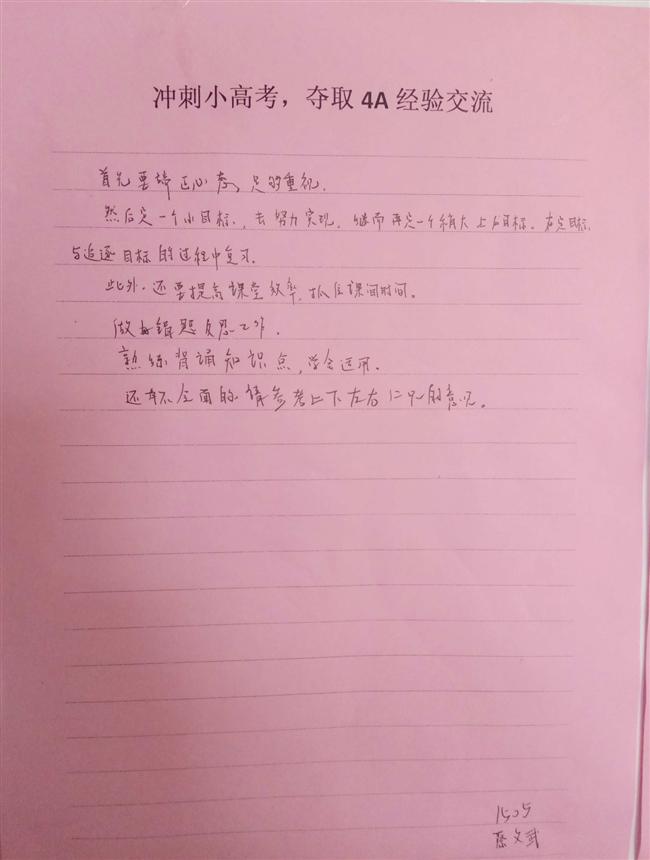 冲刺小高考，夺取 4A 经验交流
首先要端正心态，足够重视.
然后定一个小目标，去努力实现，继而再定一个稍大上的目标. 在定目标
与追逐目标的过程中复习.
此外，还要提高课堂效率，抓住课间时间.
做好错题反思工作.
熟练背诵知识点，学会运用.
还有不全面的请参考上下左右仁兄的意见。
1505
文武